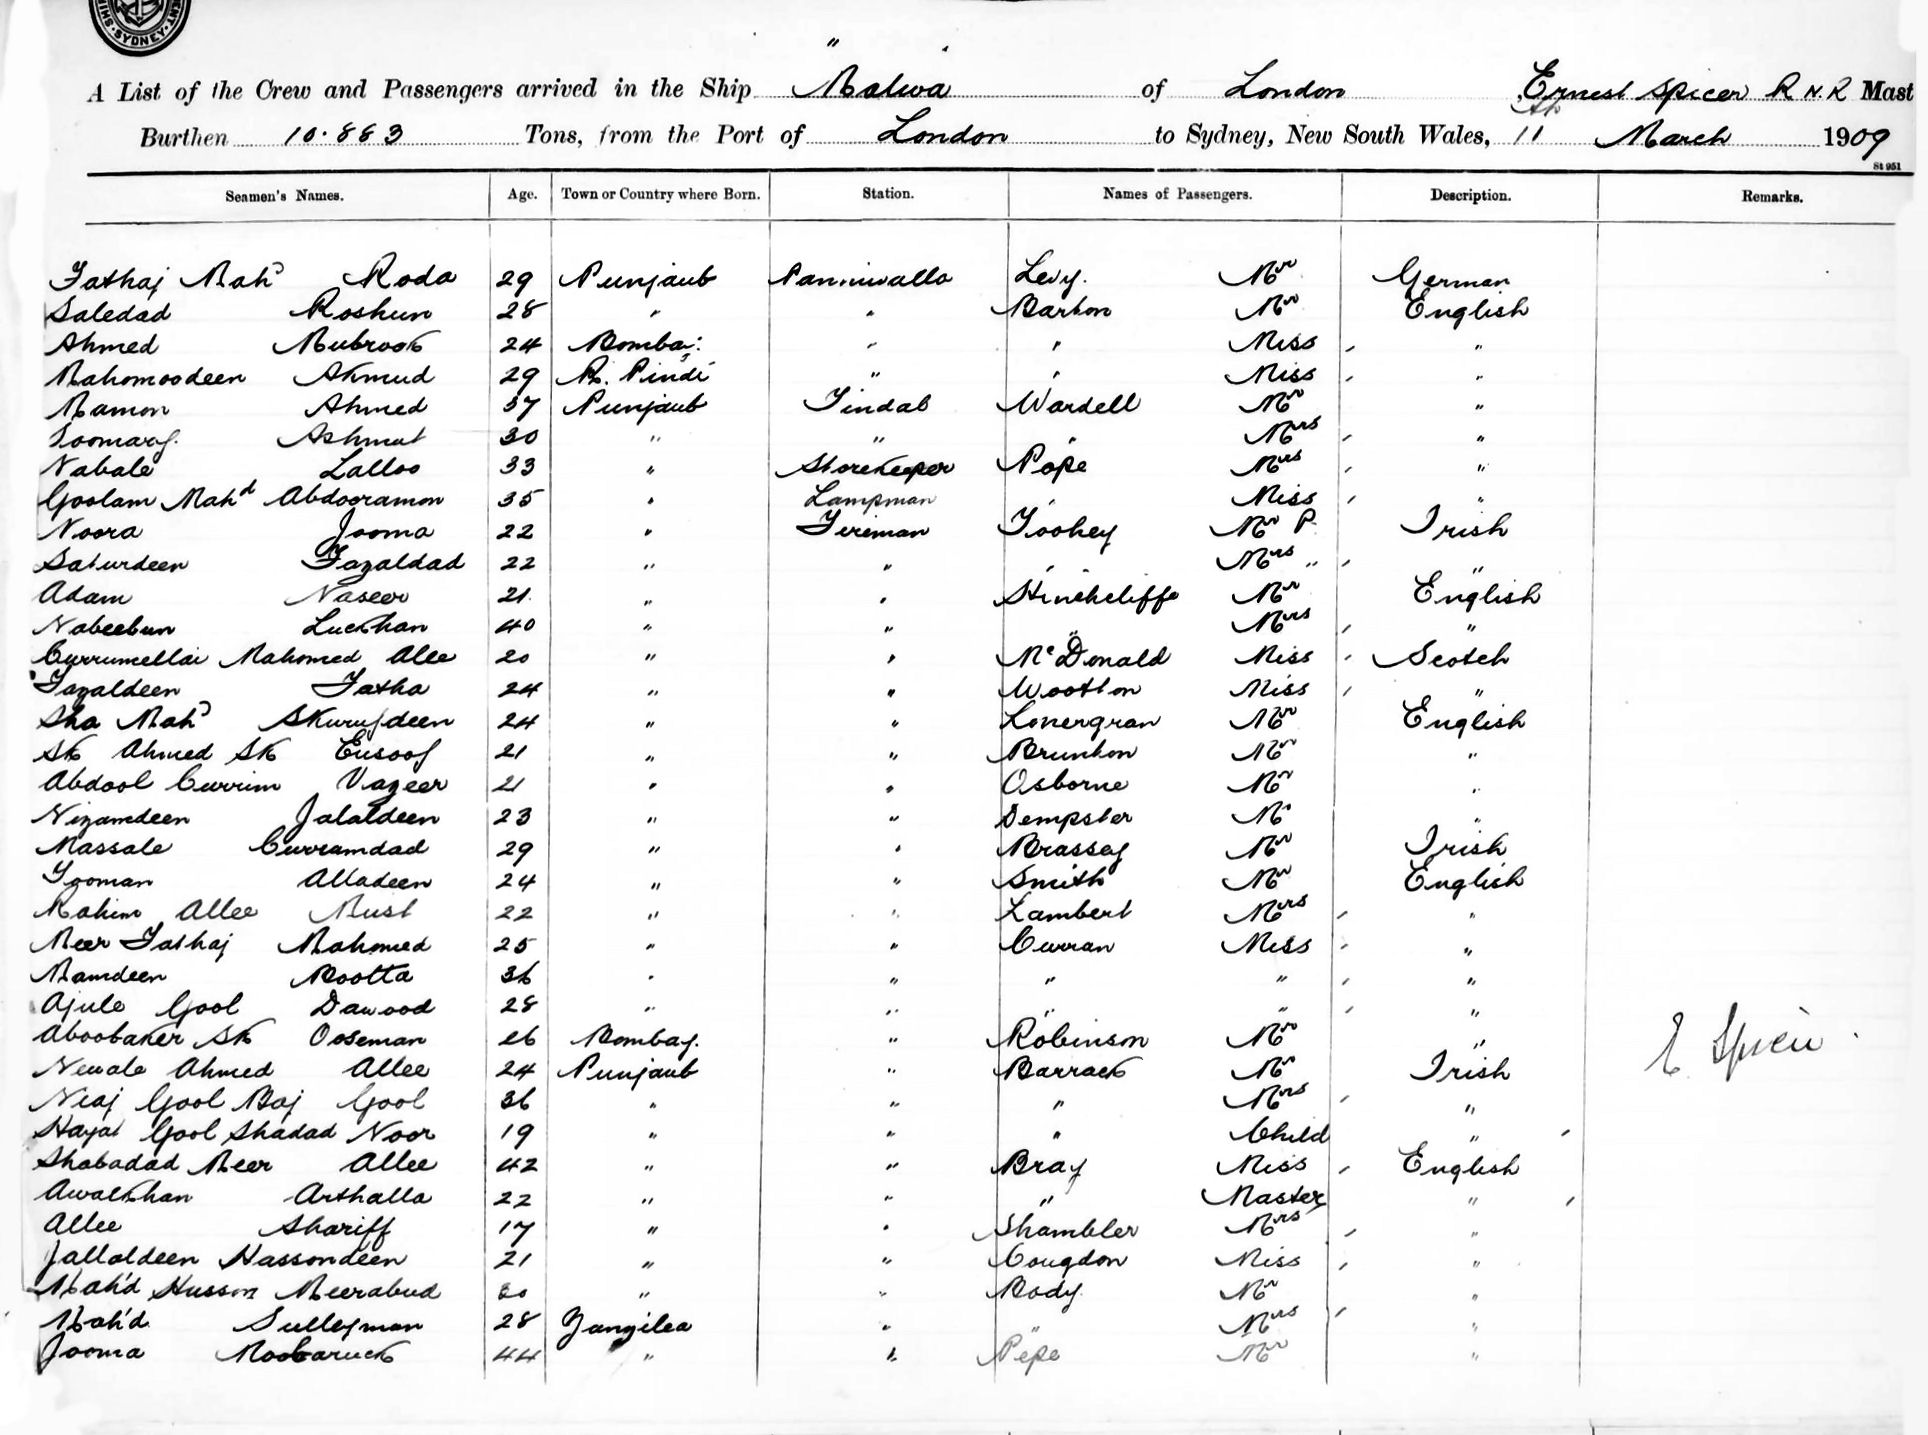 SYDNEY
A List of the Crew and Passengers arrived in the Ship " Malwa " of London Ernest Spicer R.N.R Mast
Burthen 10.883 Tons, from the Port of London to Sydney, New South Wales, 11 March 1909
St 951
Seamen's Names. Age. Town or Country where Born. Station. Names of Passengers. Description. Remarks.
Fathaj Mahd Roda 29 Punjaub Panniwalla Levy. Mr German
Saledad Roshun 28 " " Barton Mr English
Ahmed Mubrook 24 Bombay " " Miss "
Mahomoodeen Akmud 29 R. Pindi " " Miss "
Mamon Ahmed 37 Punjaub Tindal Wardell Mr "
Ashmut 30 " " " Mrs "
Nabale Lalloo 33 " Storekeeper Pope Mrs "
Goolam Mahd Abdooramon 35 " Lampman Miss "
Noora Jooma 22 " Fireman Toohey Mr P. Irish
Saburdeen Fazaldad 22 " " " Mrs " "
Adam Naseer 21 " " Hinchcliffe Mr English
Nabeebun Luckhan 40 " " " Mrs "
Currumellai Mahomed Allee 20 " " McDonald Miss Scotch
Fazaldeen Fatha 24 " " Wootton Miss "
Sha Mahd Skurufdeen 24 " " Lonergran Mr English
Sk Ahmed Sk Eusoof 21 " " Brunton Mr "
Abdool Currim Vazeer 21 " " Osborne Mr "
Nizamdeen Jalaldeen 23 " " Dempster Mr "
Massale Curramdad 29 " " Brassey Mr Irish
Yooman Alladeen 24 " " Smith Mr English
Rahim Allee Must 22 " " Lambert Mrs "
Meer Fathaj Mahomed 25 " " Curran Miss "
Mamdeen Bootta 36 " " " " "
Ajule Gool Dawood 28 " " " " "
Aboobaker Sk Ooseman 26 Bombay. " Robinson Mr "
Newale Ahmed Allee 24 Punjaub " Barrack Mr Irish
Niaj Gool Baj Gool 36 " " " Mrs "
Hayat Gool Shadad Noor 19 " " " Child "
Shabadad Meer Allee 42 " " Bray Miss English
Awalkhan Arthalla 22 " " " Master "
Allee Shariff 17 " " Shambler Mrs "
Jallaldeen Hassondeen 21 " " Congdon Miss "
Mah'd Husson Meerabud 20 " " Body Mr "
Mah'd Sulleyman 28 Zangilea " " Mrs "
Jooma Moobaruck 44 " " Pepe Mr "
E Spicer